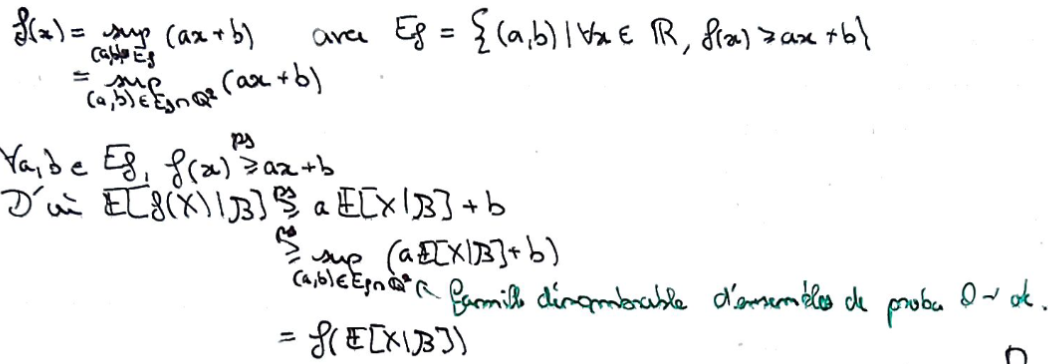 f(x) = sup_{(a,b)∈E_f} (ax+b) avec E_f = {(a,b) | ∀x ∈ ℝ, f(x) ≥ ax+b}
= sup_{(a,b)∈E_f∩ℚ²} (ax+b)
∀a,b ∈ E_f, f(x) ≥^{ps} ax+b
D'où 𝔼[f(X)|B] ≥^{ps} a 𝔼[X|B] + b
≥^{ps} sup_{(a,b)∈E_f∩ℚ²} (a𝔼[X|B]+b)
famille dénombrable d'ensembles de proba 0 → ok.
= f(𝔼[X|B])
□